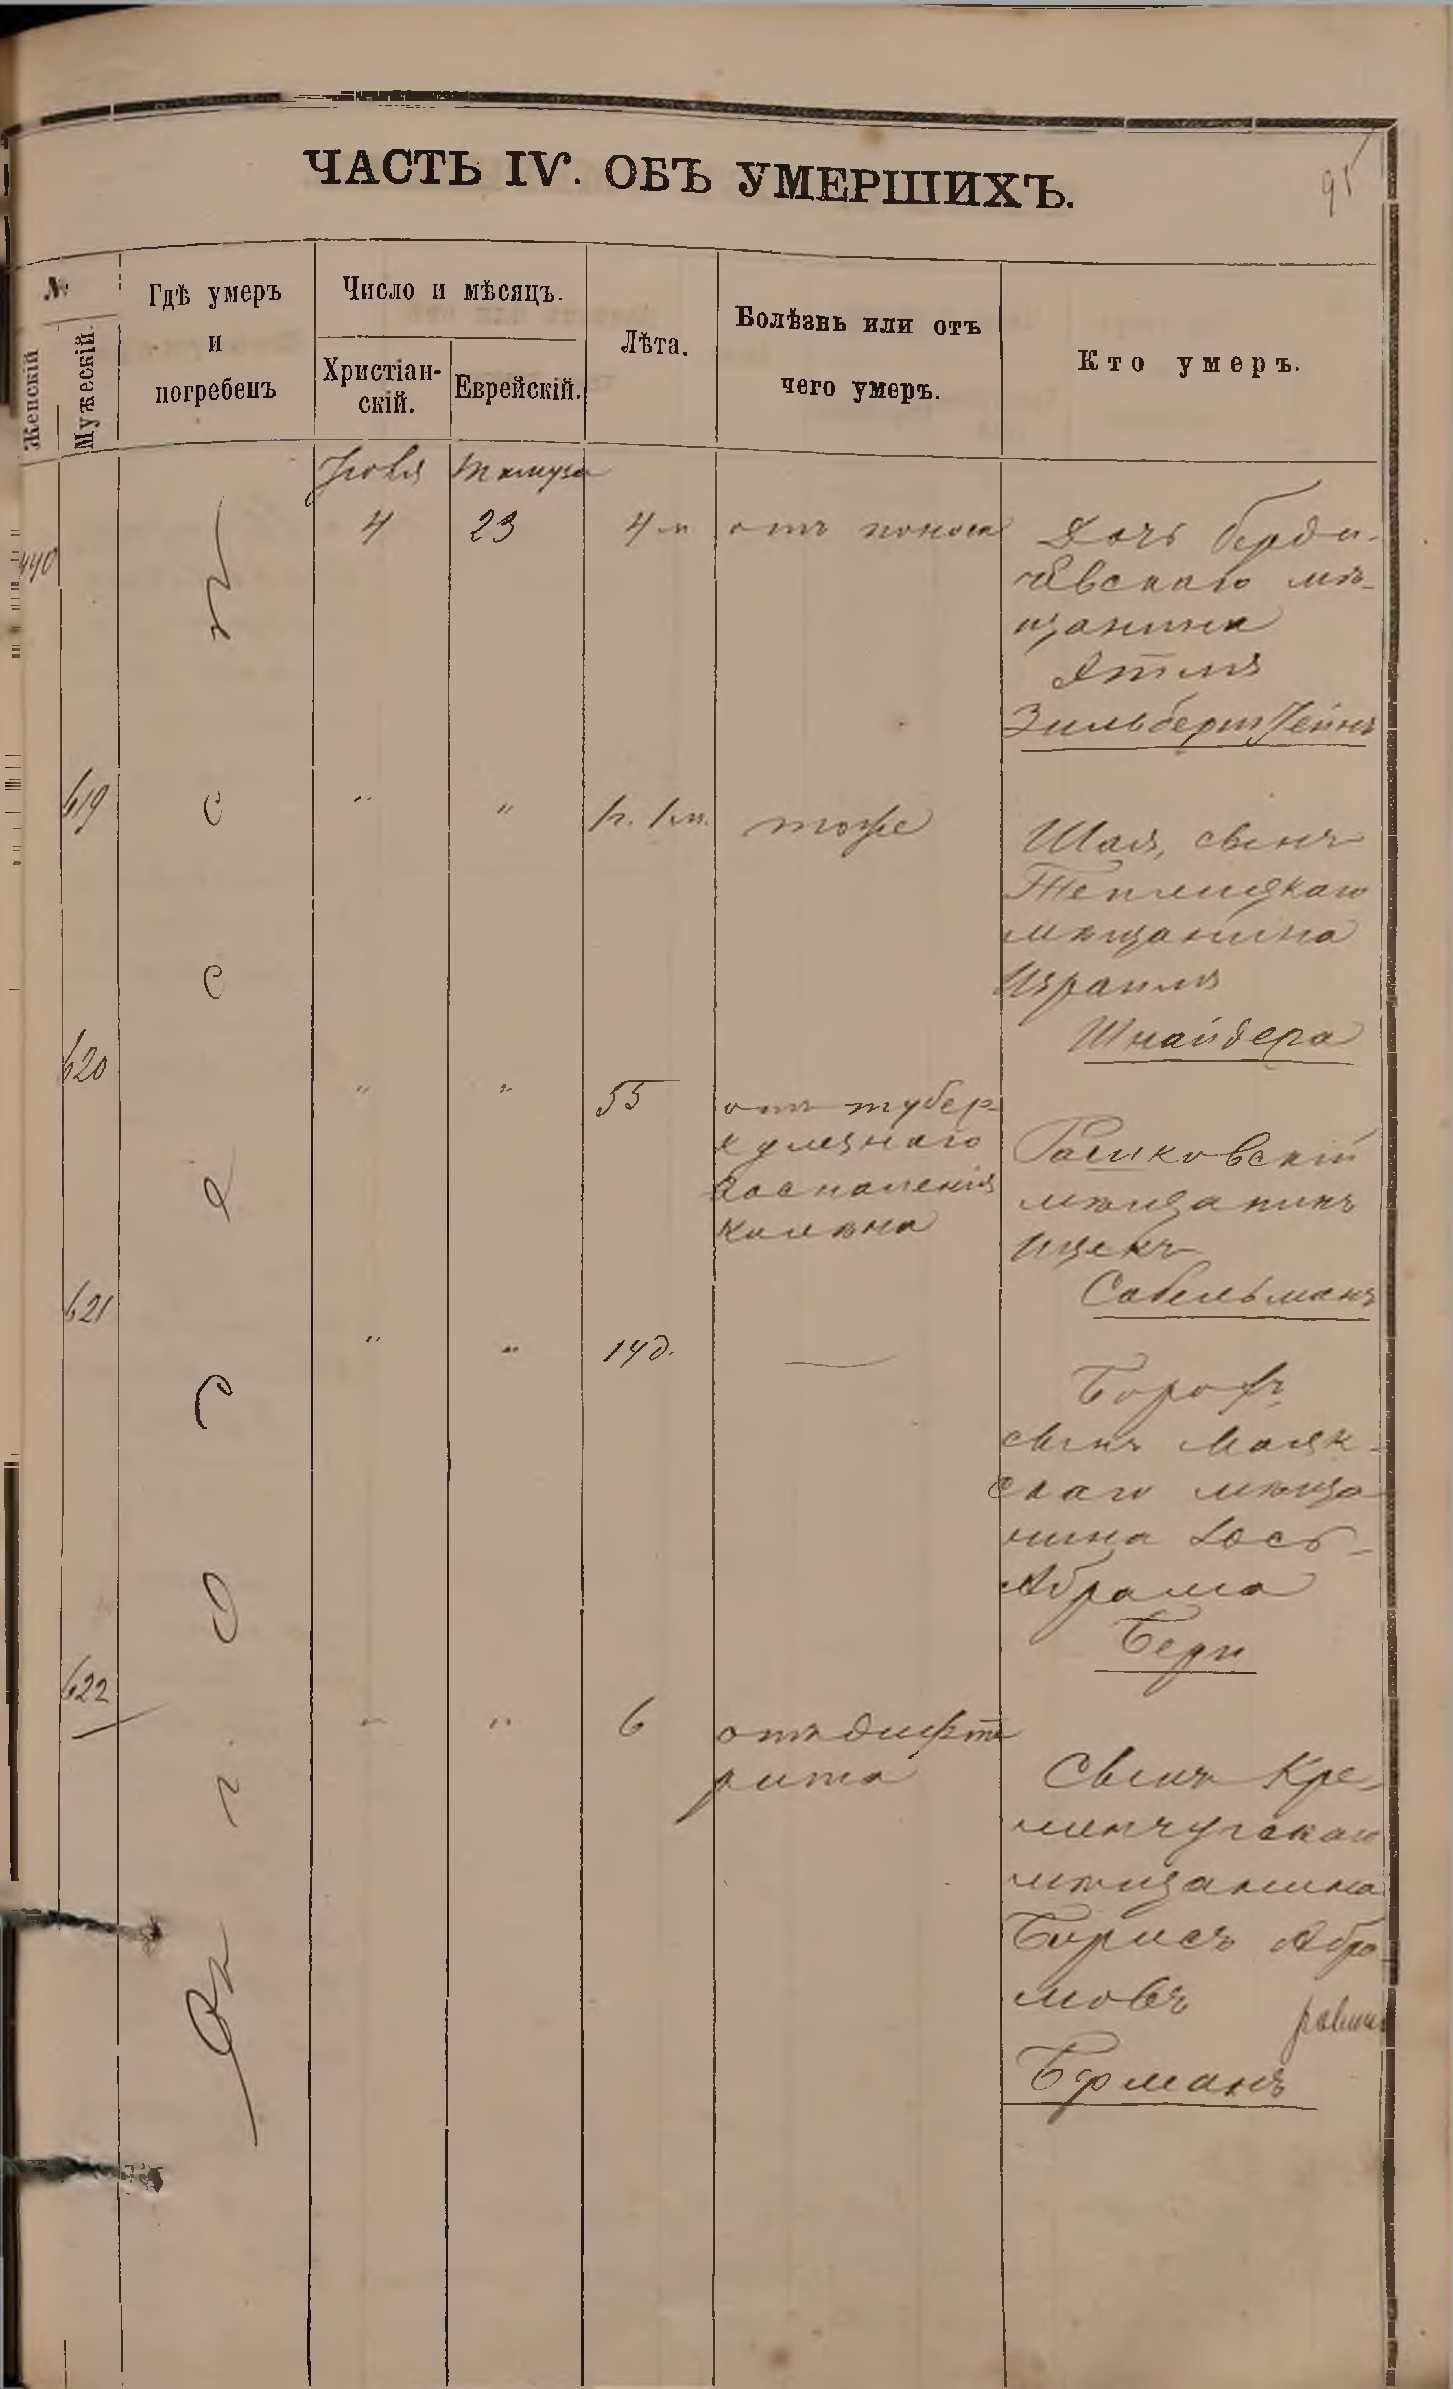 ЧАСТЬ IV. ОБЪ УМЕРШИХЪ.
95
№
Женскій
Мужескій.
Гдѣ умеръ
и
погребенъ
Число и мѣсяцъ.
Христіан-
скій.
Еврейскій.
Лѣта.
Болѣзнь или отъ
чего умеръ.
Кто умеръ.
Въ г. Одессѣ
Іюля
Тамуза
440
4
23
4 м
отъ поноса
Дочь берди-
чевскаго мѣ-
щанина
Этля
Зильберштейнъ
619
"
"
1 г. 1 м.
тоже
Шая, сынъ
Теплицкаго
мѣщанина
Израиля
Шнайдера
620
"
"
55
отъ тубер-
кулезнаго
воспаленія
колѣна
Рашковскій
мѣщанинъ
Ицекъ
Сабельманъ
621
"
"
14 д.
—
сынъ Маяк-
скаго мѣща-
нина Іось-
Абрама
622
"
"
6
отъ дифте
рита
Сынъ Кре-
менчугскаго
мѣщанина
Борисъ Абра-
мовъ
Берманъ